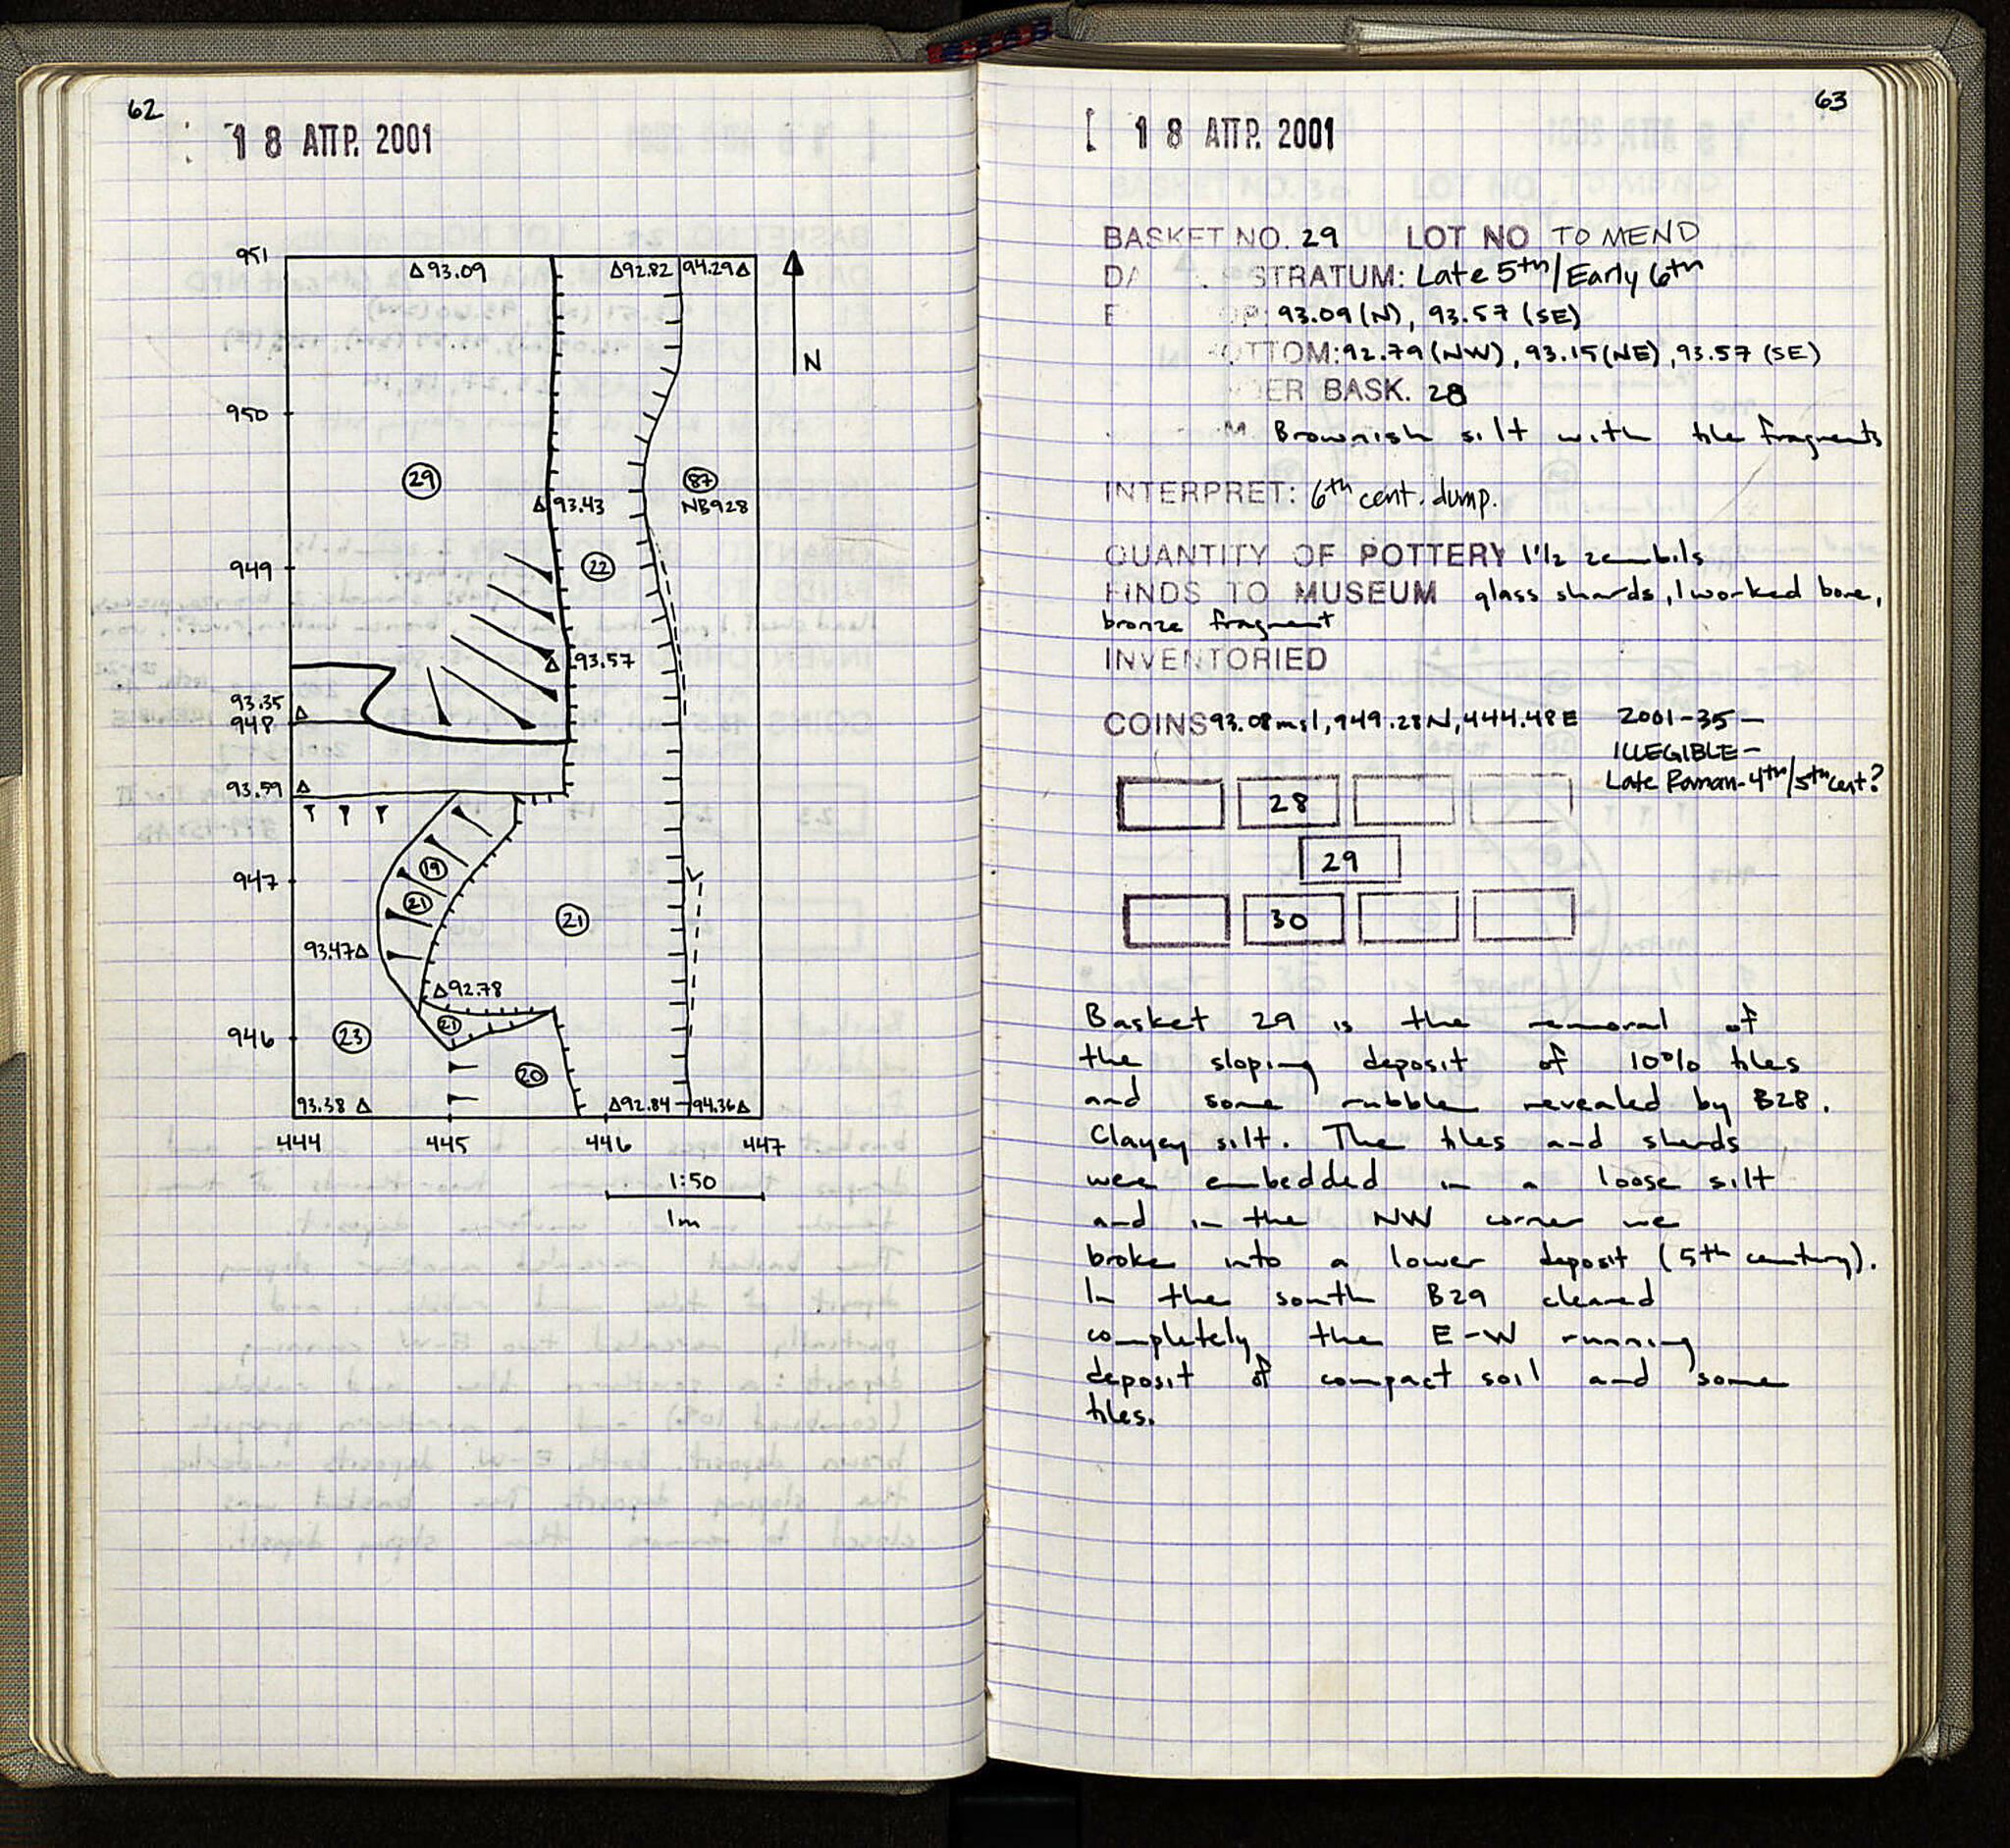 62
18 ΑΠΡ. 2001
951
Δ93.09
Δ92.82
94.29Δ
N
950
29
87
NB928
Δ 93.43
949
22
Δ 93.57
93.35 Δ
948
93.59 Δ
19
947
21
21
93.47Δ
Δ92.78
21
946
23
20
93.38 Δ
Δ92.84
94.36Δ
444
445
446
447
1:50
1m
63
[ 18 ΑΠΡ. 2001
BASKET NO. 29 LOT NO TO MEND
STRATUM: Late 5th/Early 6th
93.09 (N), 93.57 (SE)
OTTOM: 92.79 (NW), 93.15 (NE), 93.57 (SE)
ER BASK. 28
M Brownish silt with tile fragments
INTERPRET: 6th cent. dump.
QUANTITY OF POTTERY 1 1/2 zembils
FINDS TO MUSEUM glass shards, 1 worked bone,
bronze fragment
INVENTORIED
COINS 93.08 msl, 949.28N, 444.48E 2001-35-
ILLEGIBLE-
Late Roman-4th/5th cent?
28
29
30
Basket 29 is the removal of
the sloping deposit of 10% tiles
and some rubble revealed by B28.
Clayey silt. The tiles and sherds
were embedded in a loose silt
and in the NW corner we
broke into a lower deposit (5th century).
In the south B29 cleared
completely the E-W running
deposit of compact soil and some
tiles.